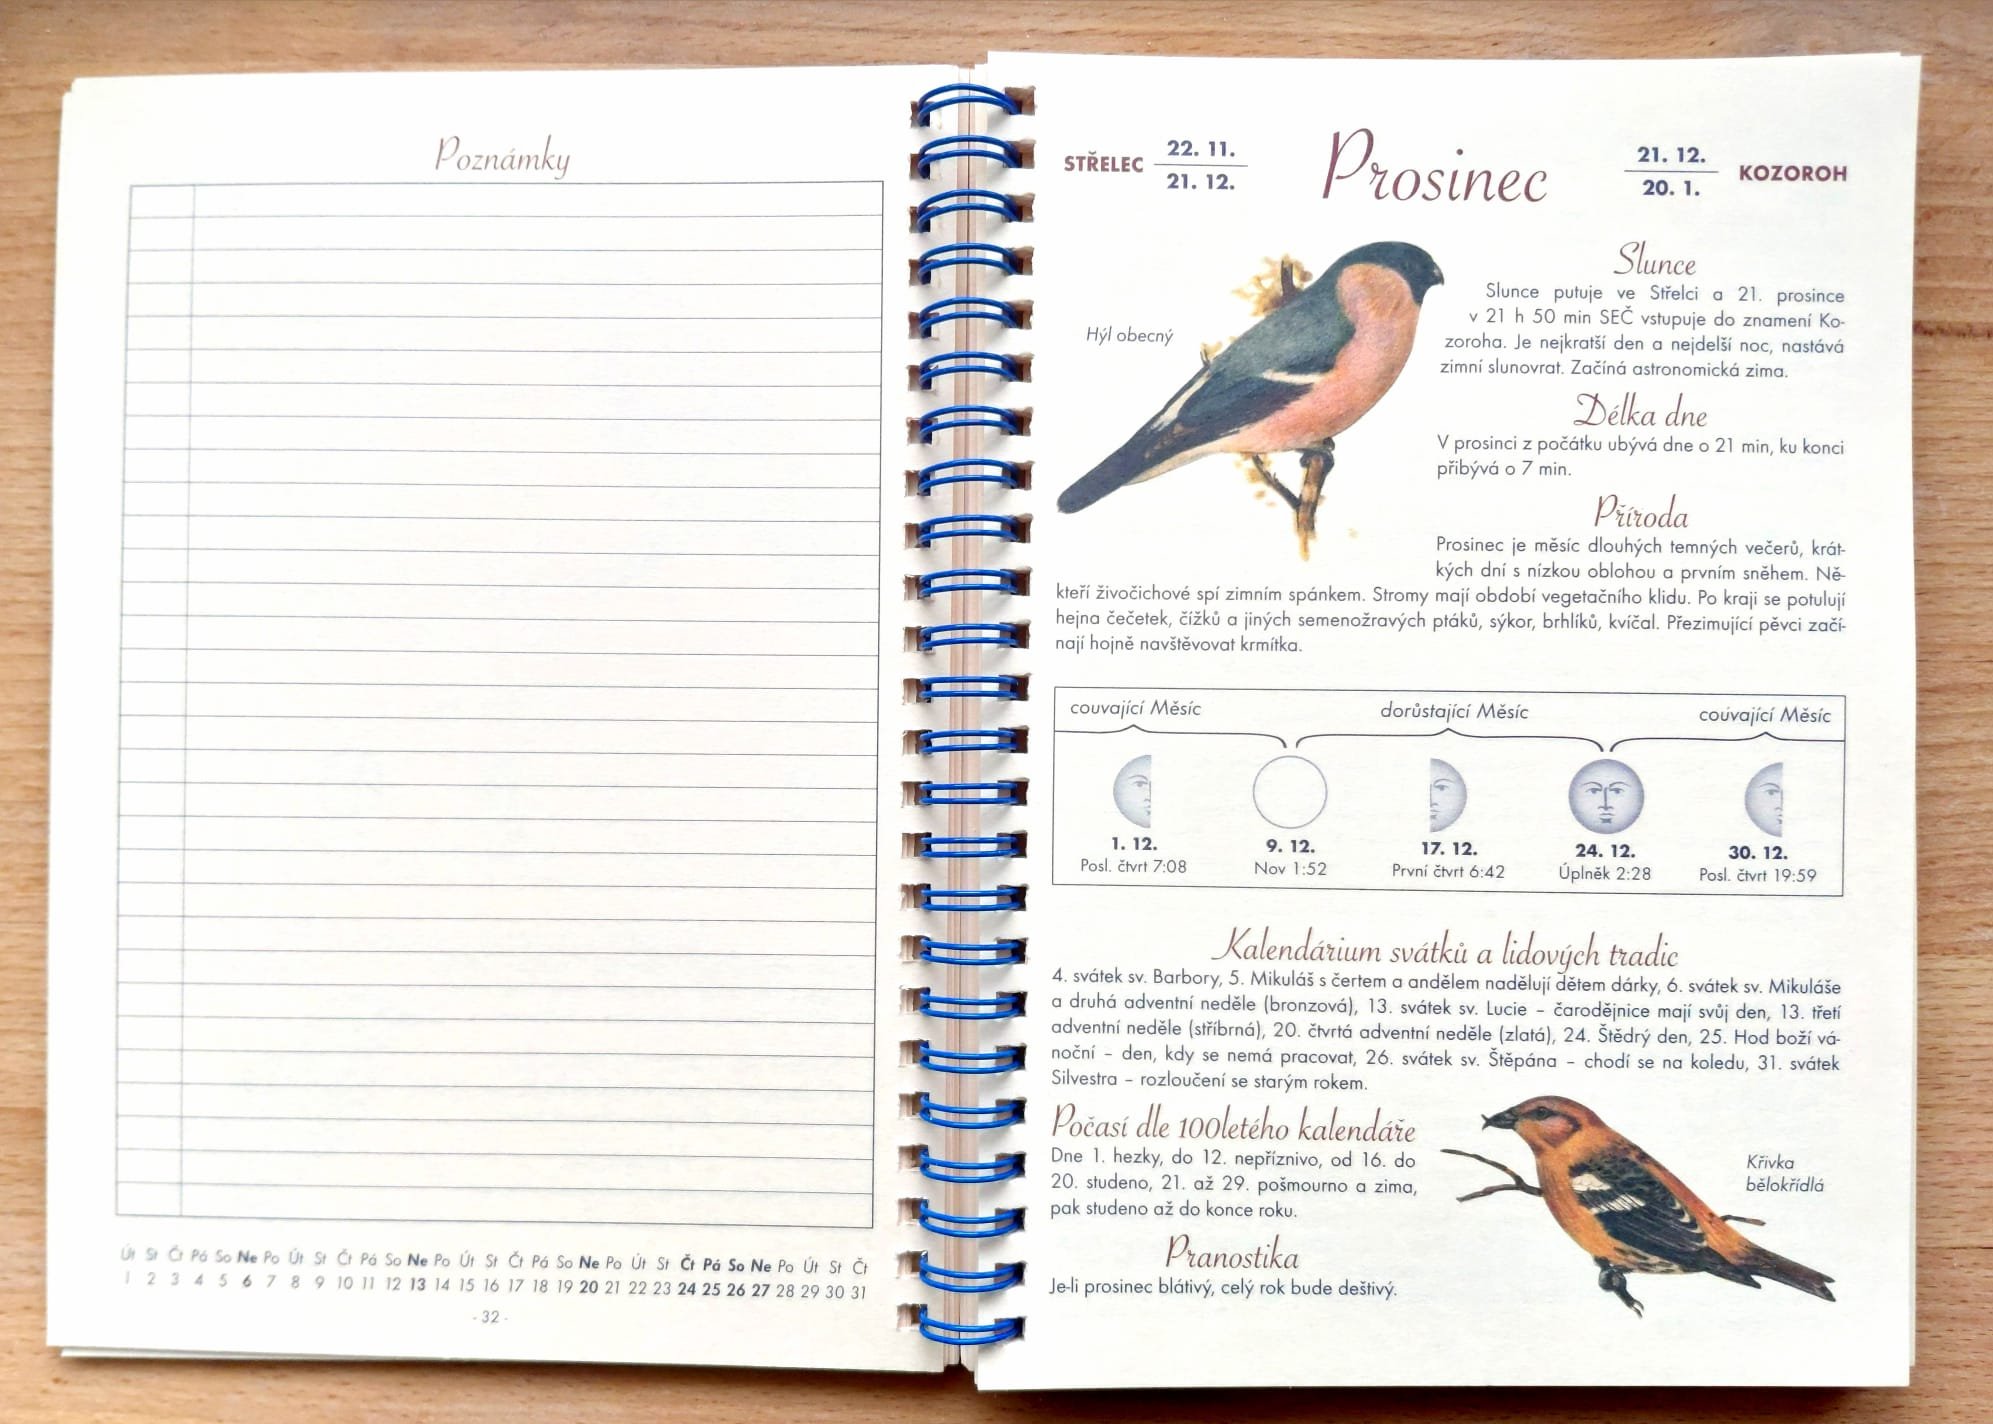 Poznámky
Út St Čt Pá So Ne Po Út St Čt Pá So Ne Po Út St Čt Pá So Ne Po Út St Čt Pá So Ne Po Út St Čt
1 2 3 4 5 6 7 8 9 10 11 12 13 14 15 16 17 18 19 20 21 22 23 24 25 26 27 28 29 30 31
- 32 -
STŘELEC 22. 11. 21. 12.
Prosinec
21. 12. 20. 1. KOZOROH
Hýl obecný
Slunce
Slunce putuje ve Střelci a 21. prosince
v 21 h 50 min SEČ vstupuje do znamení Ko-
zoroha. Je nejkratší den a nejdelší noc, nastává
zimní slunovrat. Začíná astronomická zima.
Délka dne
V prosinci z počátku ubývá dne o 21 min, ku konci
přibývá o 7 min.
Příroda
Prosinec je měsíc dlouhých temných večerů, krát-
kých dní s nízkou oblohou a prvním sněhem. Ně-
kteří živočichové spí zimním spánkem. Stromy mají období vegetačního klidu. Po kraji se potulují
hejna čečetek, čížků a jiných semenožravých ptáků, sýkor, brhlíků, kvíčal. Přezimující pěvci začí-
nají hojně navštěvovat krmítka.
couvající Měsíc dorůstající Měsíc couvající Měsíc
1. 12. 9. 12. 17. 12. 24. 12. 30. 12.
Posl. čtvrt 7:08 Nov 1:52 První čtvrt 6:42 Úplněk 2:28 Posl. čtvrt 19:59
Kalendárium svátků a lidových tradic
4. svátek sv. Barbory, 5. Mikuláš s čertem a andělem nadělují dětem dárky, 6. svátek sv. Mikuláše
a druhá adventní neděle (bronzová), 13. svátek sv. Lucie – čarodějnice mají svůj den, 13. třetí
adventní neděle (stříbrná), 20. čtvrtá adventní neděle (zlatá), 24. Štědrý den, 25. Hod boží vá-
noční – den, kdy se nemá pracovat, 26. svátek sv. Štěpána – chodí se na koledu, 31. svátek
Silvestra – rozloučení se starým rokem.
Počasí dle 100letého kalendáře
Dne 1. hezky, do 12. nepříznivo, od 16. do
20. studeno, 21. až 29. pošmourno a zima,
pak studeno až do konce roku.
Křivka
bělokřídlá
Pranostika
Je-li prosinec blátivý, celý rok bude deštivý.